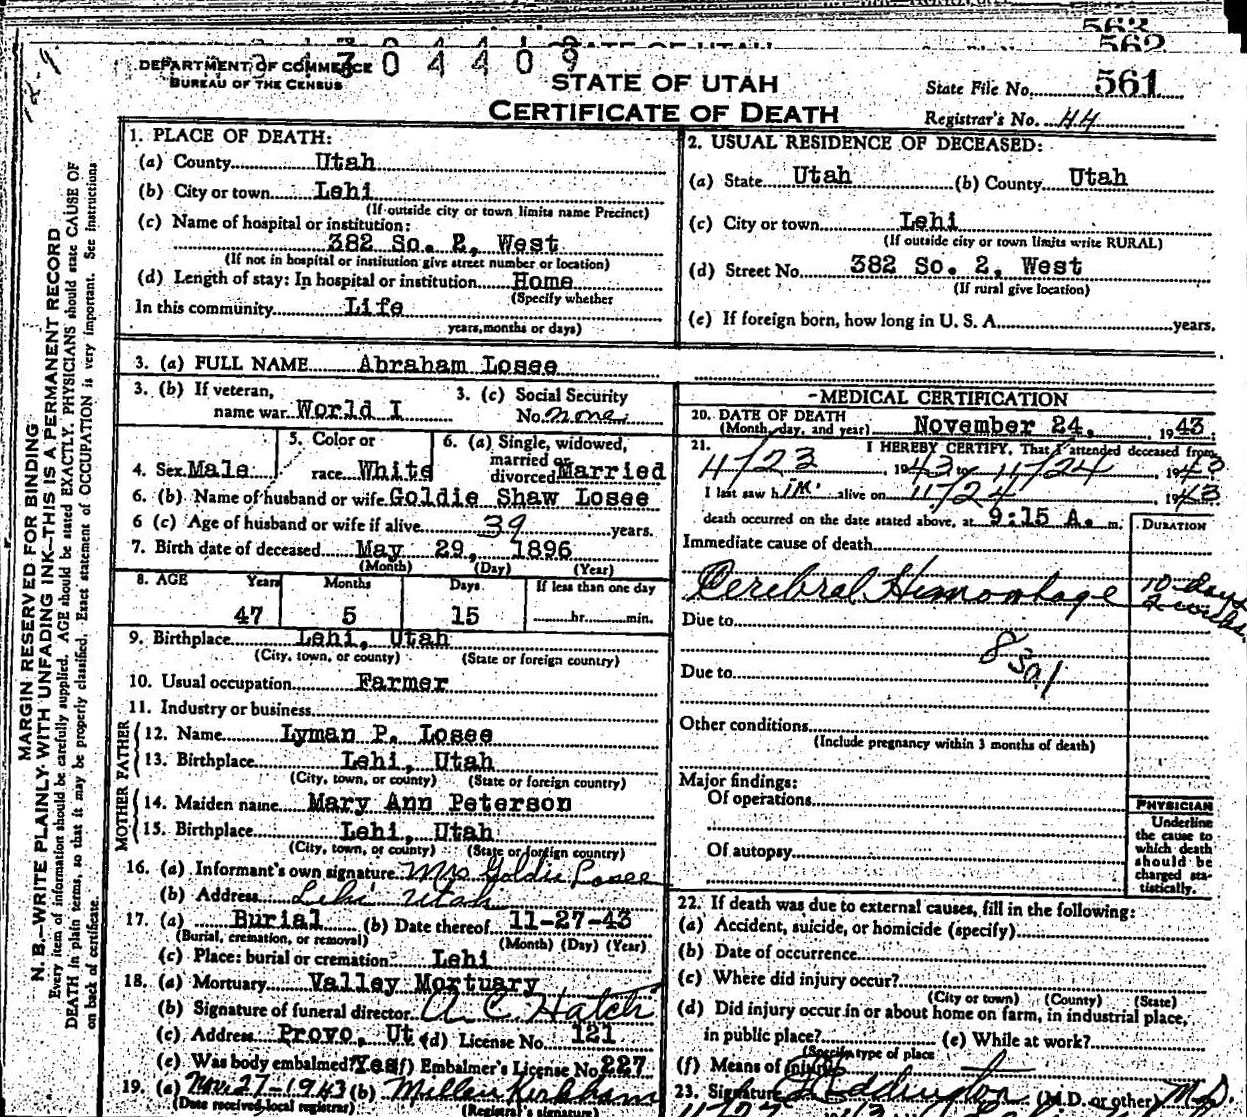 562
562
34304409
DEPARTMENT OF COMMERCE
BUREAU OF THE CENSUS
STATE OF UTAH
CERTIFICATE OF DEATH
State File No. 561
Registrar's No. 44
MARGIN RESERVED FOR BINDING
N. B.—WRITE PLAINLY WITH UNFADING INK—THIS IS A PERMANENT RECORD
Every item of information should be carefully supplied. AGE should be stated EXACTLY. PHYSICIANS should state CAUSE OF
DEATH in plain terms, so that it may be properly classified. Exact statement of OCCUPATION is very important. See instructions
on back of certificate.
1. PLACE OF DEATH:
(a) County Utah
(b) City or town Lehi
(If outside city or town limits name Precinct)
(c) Name of hospital or institution:
382 So. 2, West
(If not in hospital or institution give street number or location)
(d) Length of stay: In hospital or institution Home
(Specify whether
In this community Life
years, months or days)
2. USUAL RESIDENCE OF DECEASED:
(a) State Utah (b) County Utah
(c) City or town Lehi
(If outside city or town limits write RURAL)
(d) Street No. 382 So. 2, West
(If rural give location)
(e) If foreign born, how long in U. S. A. years.
3. (a) FULL NAME Abraham Losee
3. (b) If veteran,
name war World I
3. (c) Social Security
No. none
4. Sex Male
5. Color or
race White
6. (a) Single, widowed,
married or
divorced Married
6. (b) Name of husband or wife Goldie Shaw Losee
6 (c) Age of husband or wife if alive 39 years.
7. Birth date of deceased May 29, 1896
(Month) (Day) (Year)
8. AGE Years Months Days If less than one day
47 5 15 hr. min.
9. Birthplace Lehi, Utah
(City, town, or county) (State or foreign country)
10. Usual occupation Farmer
11. Industry or business
FATHER
12. Name Lyman P. Losee
13. Birthplace Lehi, Utah
(City, town, or county) (State or foreign country)
MOTHER
14. Maiden name Mary Ann Peterson
15. Birthplace Lehi, Utah
(City, town, or county) (State or foreign country)
16. (a) Informant's own signature Mrs Goldie Losee
(b) Address Lehi Utah
17. (a) Burial (b) Date thereof 11-27-43
(Burial, cremation, or removal) (Month) (Day) (Year)
(c) Place: burial or cremation Lehi
18. (a) Mortuary Valley Mortuary
(b) Signature of funeral director A. C. Hatch
(c) Address Provo, Ut (d) License No. 121
(e) Was body embalmed? Yes (f) Embalmer's License No. 227
19. (a) Nov 27-1943 (b) Millen Kirkham
(Date received local registrar) (Registrar's signature)
MEDICAL CERTIFICATION
20. DATE OF DEATH
(Month, day, and year) November 24, 1943.
21. I HEREBY CERTIFY, That I attended deceased from
11/23, 1943 to 11/24, 1943
I last saw him alive on 11/24 1943
death occurred on the date stated above, at 9:15 A. m.
DURATION
Immediate cause of death
Cerebral Hemorrhage 10-days
2 weeks
Due to
83a1
Due to
Other conditions
(Include pregnancy within 3 months of death)
Major findings:
Of operations
Of autopsy
PHYSICIAN
Underline
the cause to
which death
should be
charged sta-
tistically.
22. If death was due to external causes, fill in the following:
(a) Accident, suicide, or homicide (specify)
(b) Date of occurrence
(c) Where did injury occur?
(City or town) (County) (State)
(d) Did injury occur in or about home on farm, in industrial place,
in public place? (e) While at work?
(Specify type of place
(f) Means of injury
23. Signature Eddington (M.D. or other) M.D.